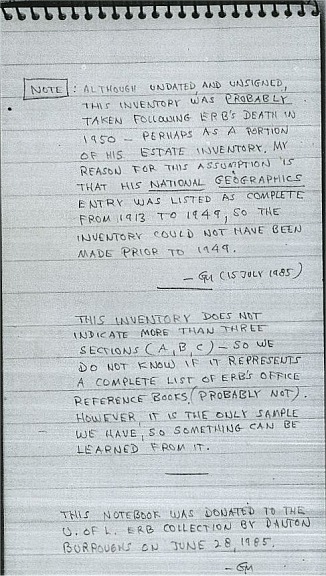 NOTE : ALTHOUGH UNDATED AND UNSIGNED,
THIS INVENTORY WAS PROBABLY
TAKEN FOLLOWING ERB'S DEATH IN
1950 — PERHAPS AS A PORTION
OF HIS ESTATE INVENTORY. MY
REASON FOR THIS ASSUMPTION IS
THAT HIS NATIONAL GEOGRAPHICS
ENTRY WAS LISTED AS COMPLETE
FROM 1913 TO 1949, SO THE
INVENTORY COULD NOT HAVE BEEN
MADE PRIOR TO 1949.
— GM (15 JULY 1985)
THIS INVENTORY DOES NOT
INDICATE MORE THAN THREE
SECTIONS (A, B, C) — SO WE
DO NOT KNOW IF IT REPRESENTS
A COMPLETE LIST OF ERB'S OFFICE
REFERENCE BOOKS (PROBABLY NOT).
HOWEVER, IT IS THE ONLY SAMPLE
WE HAVE, SO SOMETHING CAN BE
LEARNED FROM IT.
THIS NOTEBOOK WAS DONATED TO THE
U. OF L. ERB COLLECTION BY DANTON
BURROUGHS ON JUNE 28, 1985.
— GM